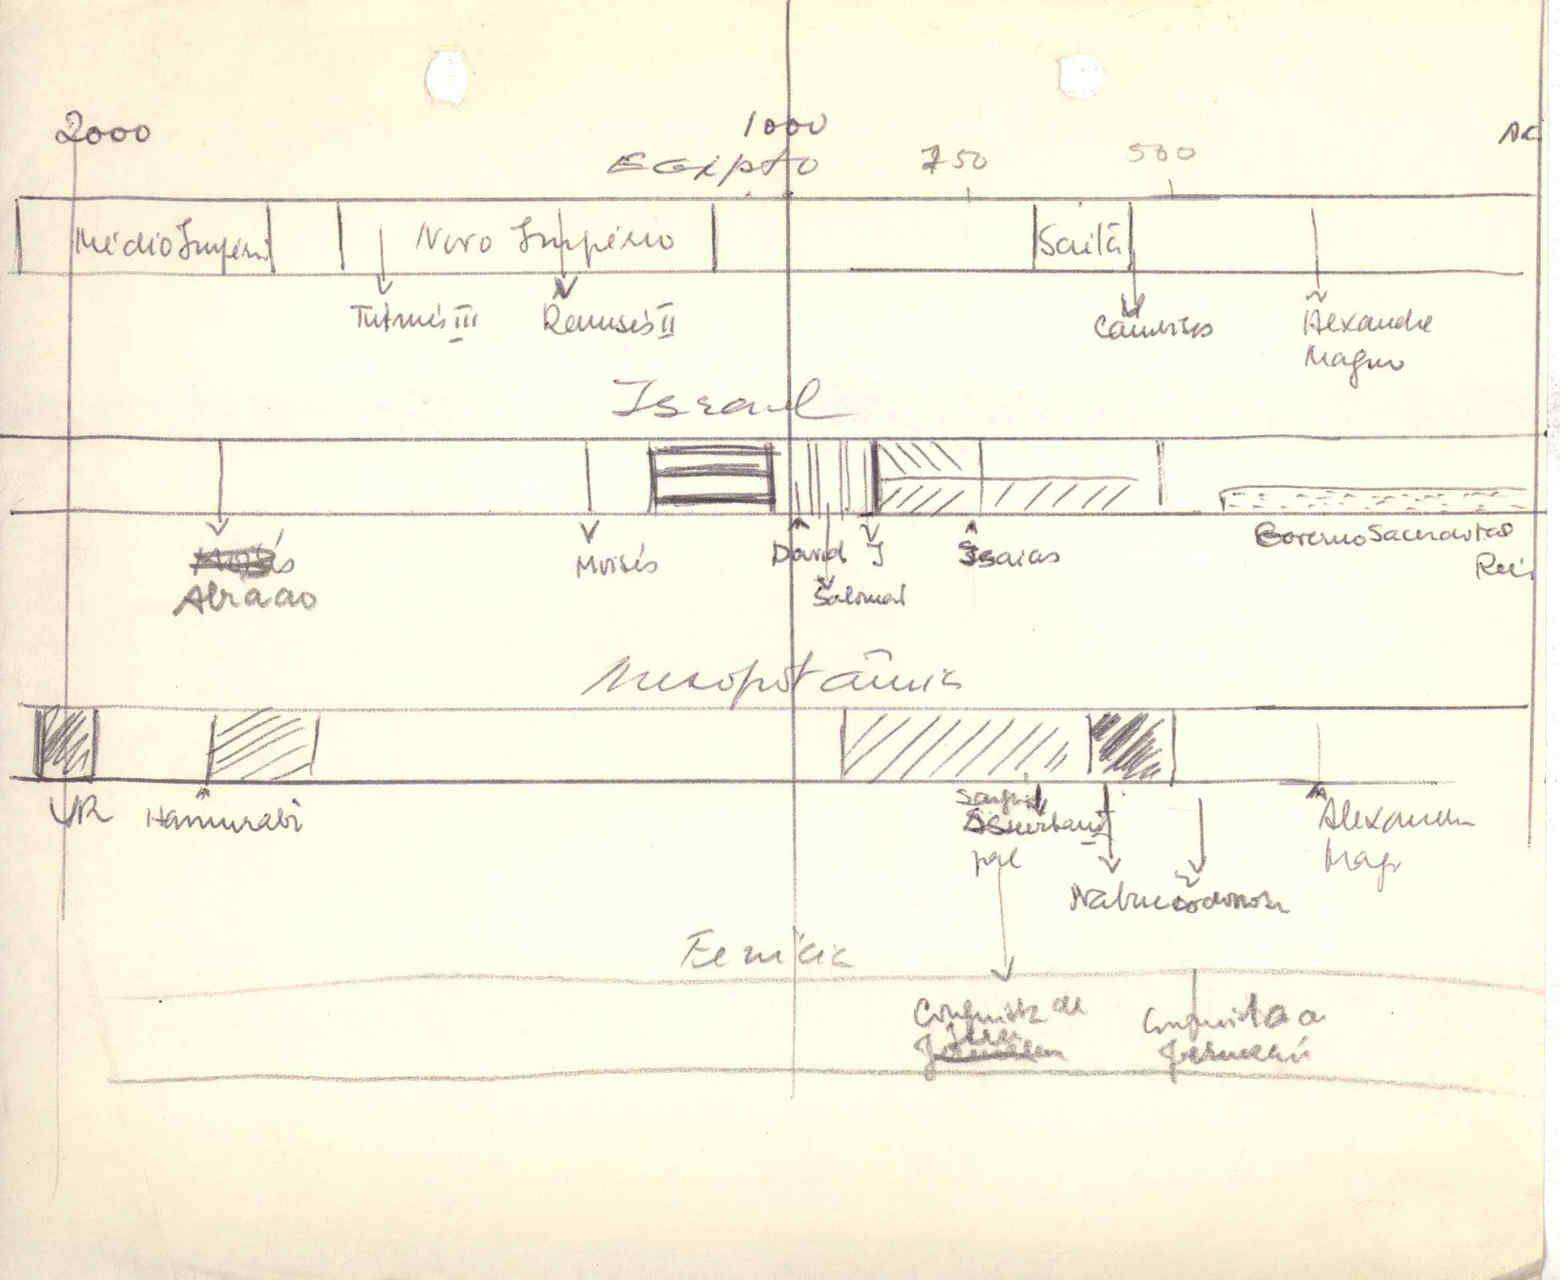 2000
1000
AC
Egipto
750
500
Médio Império
Novo Império
Saitã
Tutmés III
Ramsés II
Cambises
Alexandre
Magno
Israel
Abraao
Moisés
David
J
Isaias
Salomao
Governo Sacerdotal
Mesopotâmia
UR
Hamurabi
Sargão
Assurbani
pal
Nabucodonosor
Alexandre
Mag
Fenícia
Conquista de
Conquista a
Jerusalém